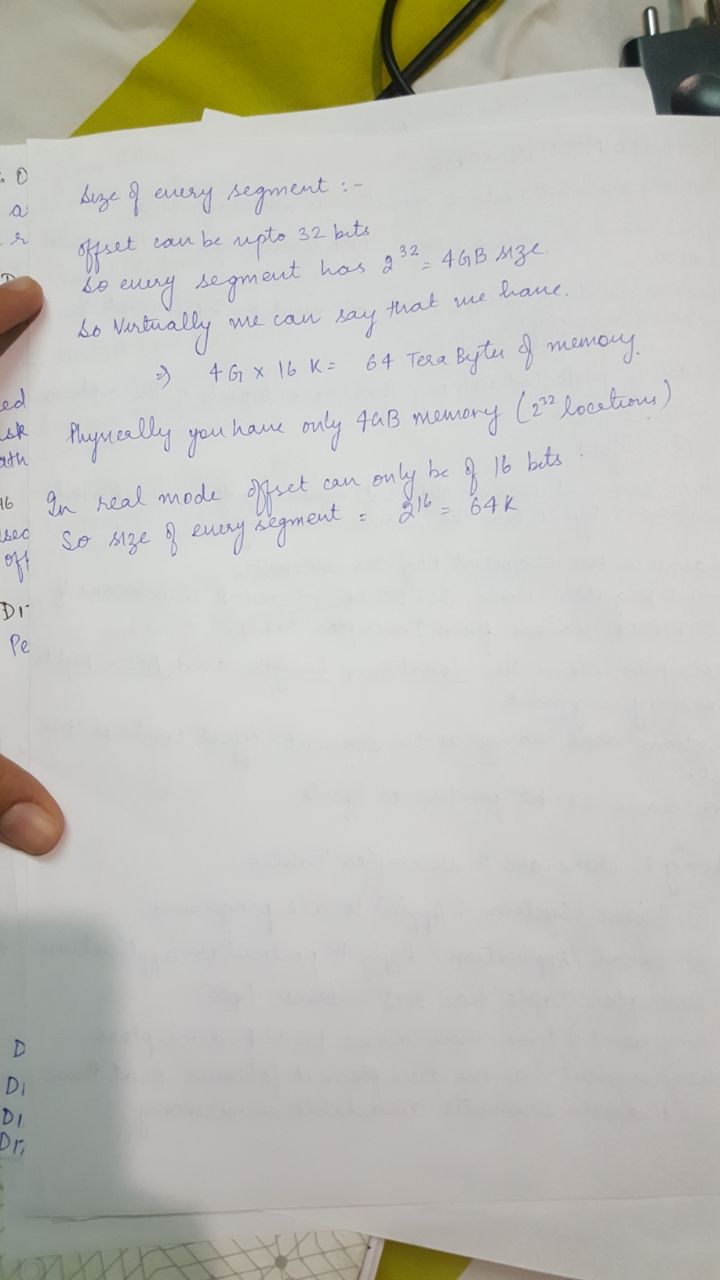 Size of every segment :-
offset can be upto 32 bits
So every segment has 2^32 = 4GB size.
So Virtually we can say that we have.
⇒ 4G x 16 K = 64 Tera Bytes of memory.
Physically you have only 4GB memory (2^32 locations)
In real mode offset can only be of 16 bits.
So size of every segment = 2^16 = 64K
ed
sk
ath
16
sed
off
D1-
Pe
D
D1
D1